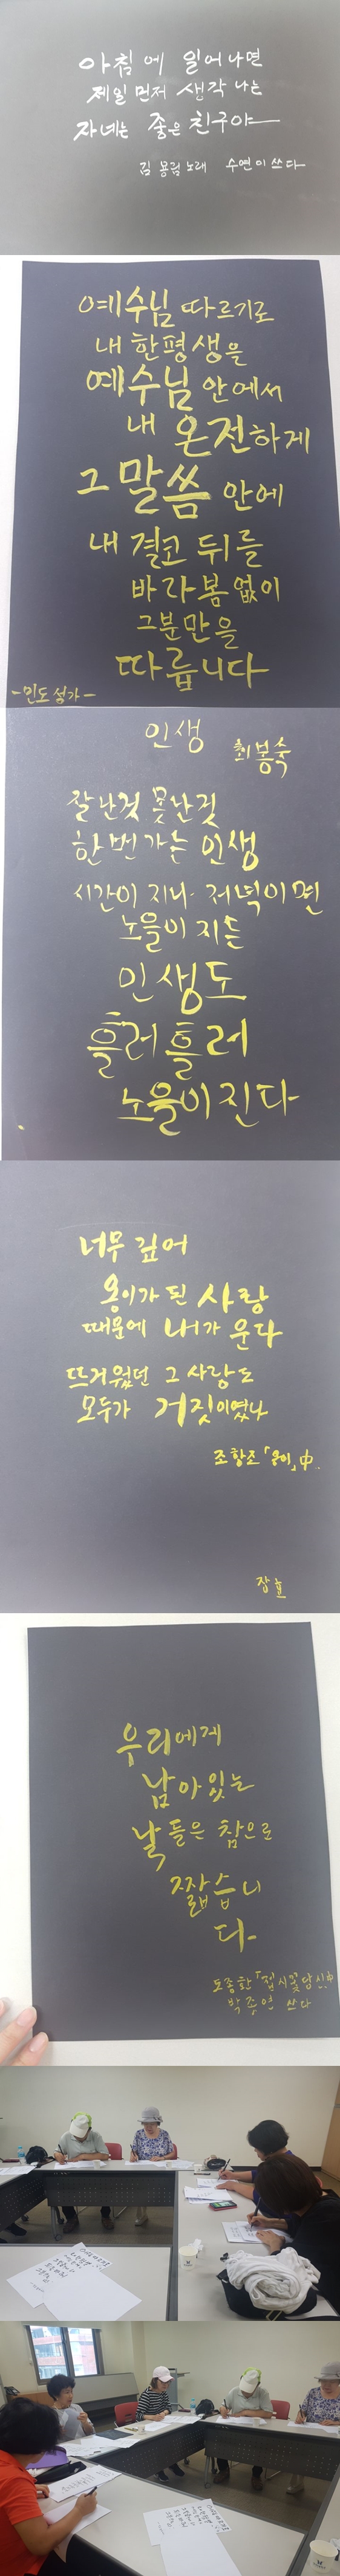 아침에 일어나면
제일 먼저 생각 나는
자네는 좋은 친구야
김용림 노래 수연이 쓰다
예수님 따르기로
내 한평생을
예수님 안에서
내 온전하게
그 말씀 안에
내 결코 뒤를
바라봄 없이
그분만을
따릅니다
-인도 성가-
인생
최봉숙
잘난것 못난것
한번 가는 인생
시간이 지나 저녁이면
노을이 지듯
인생도
흘러흘러
노을이 진다
너무 깊어
옹이가 된 사랑
때문에 내가 운다
뜨거웠던 그 사랑도
모두가 거짓이었나
조항조「옹이」中.
우리에게
남아있는
날들은 참으로
짧습니
다
도종환「접시꽃당신中
쓰다